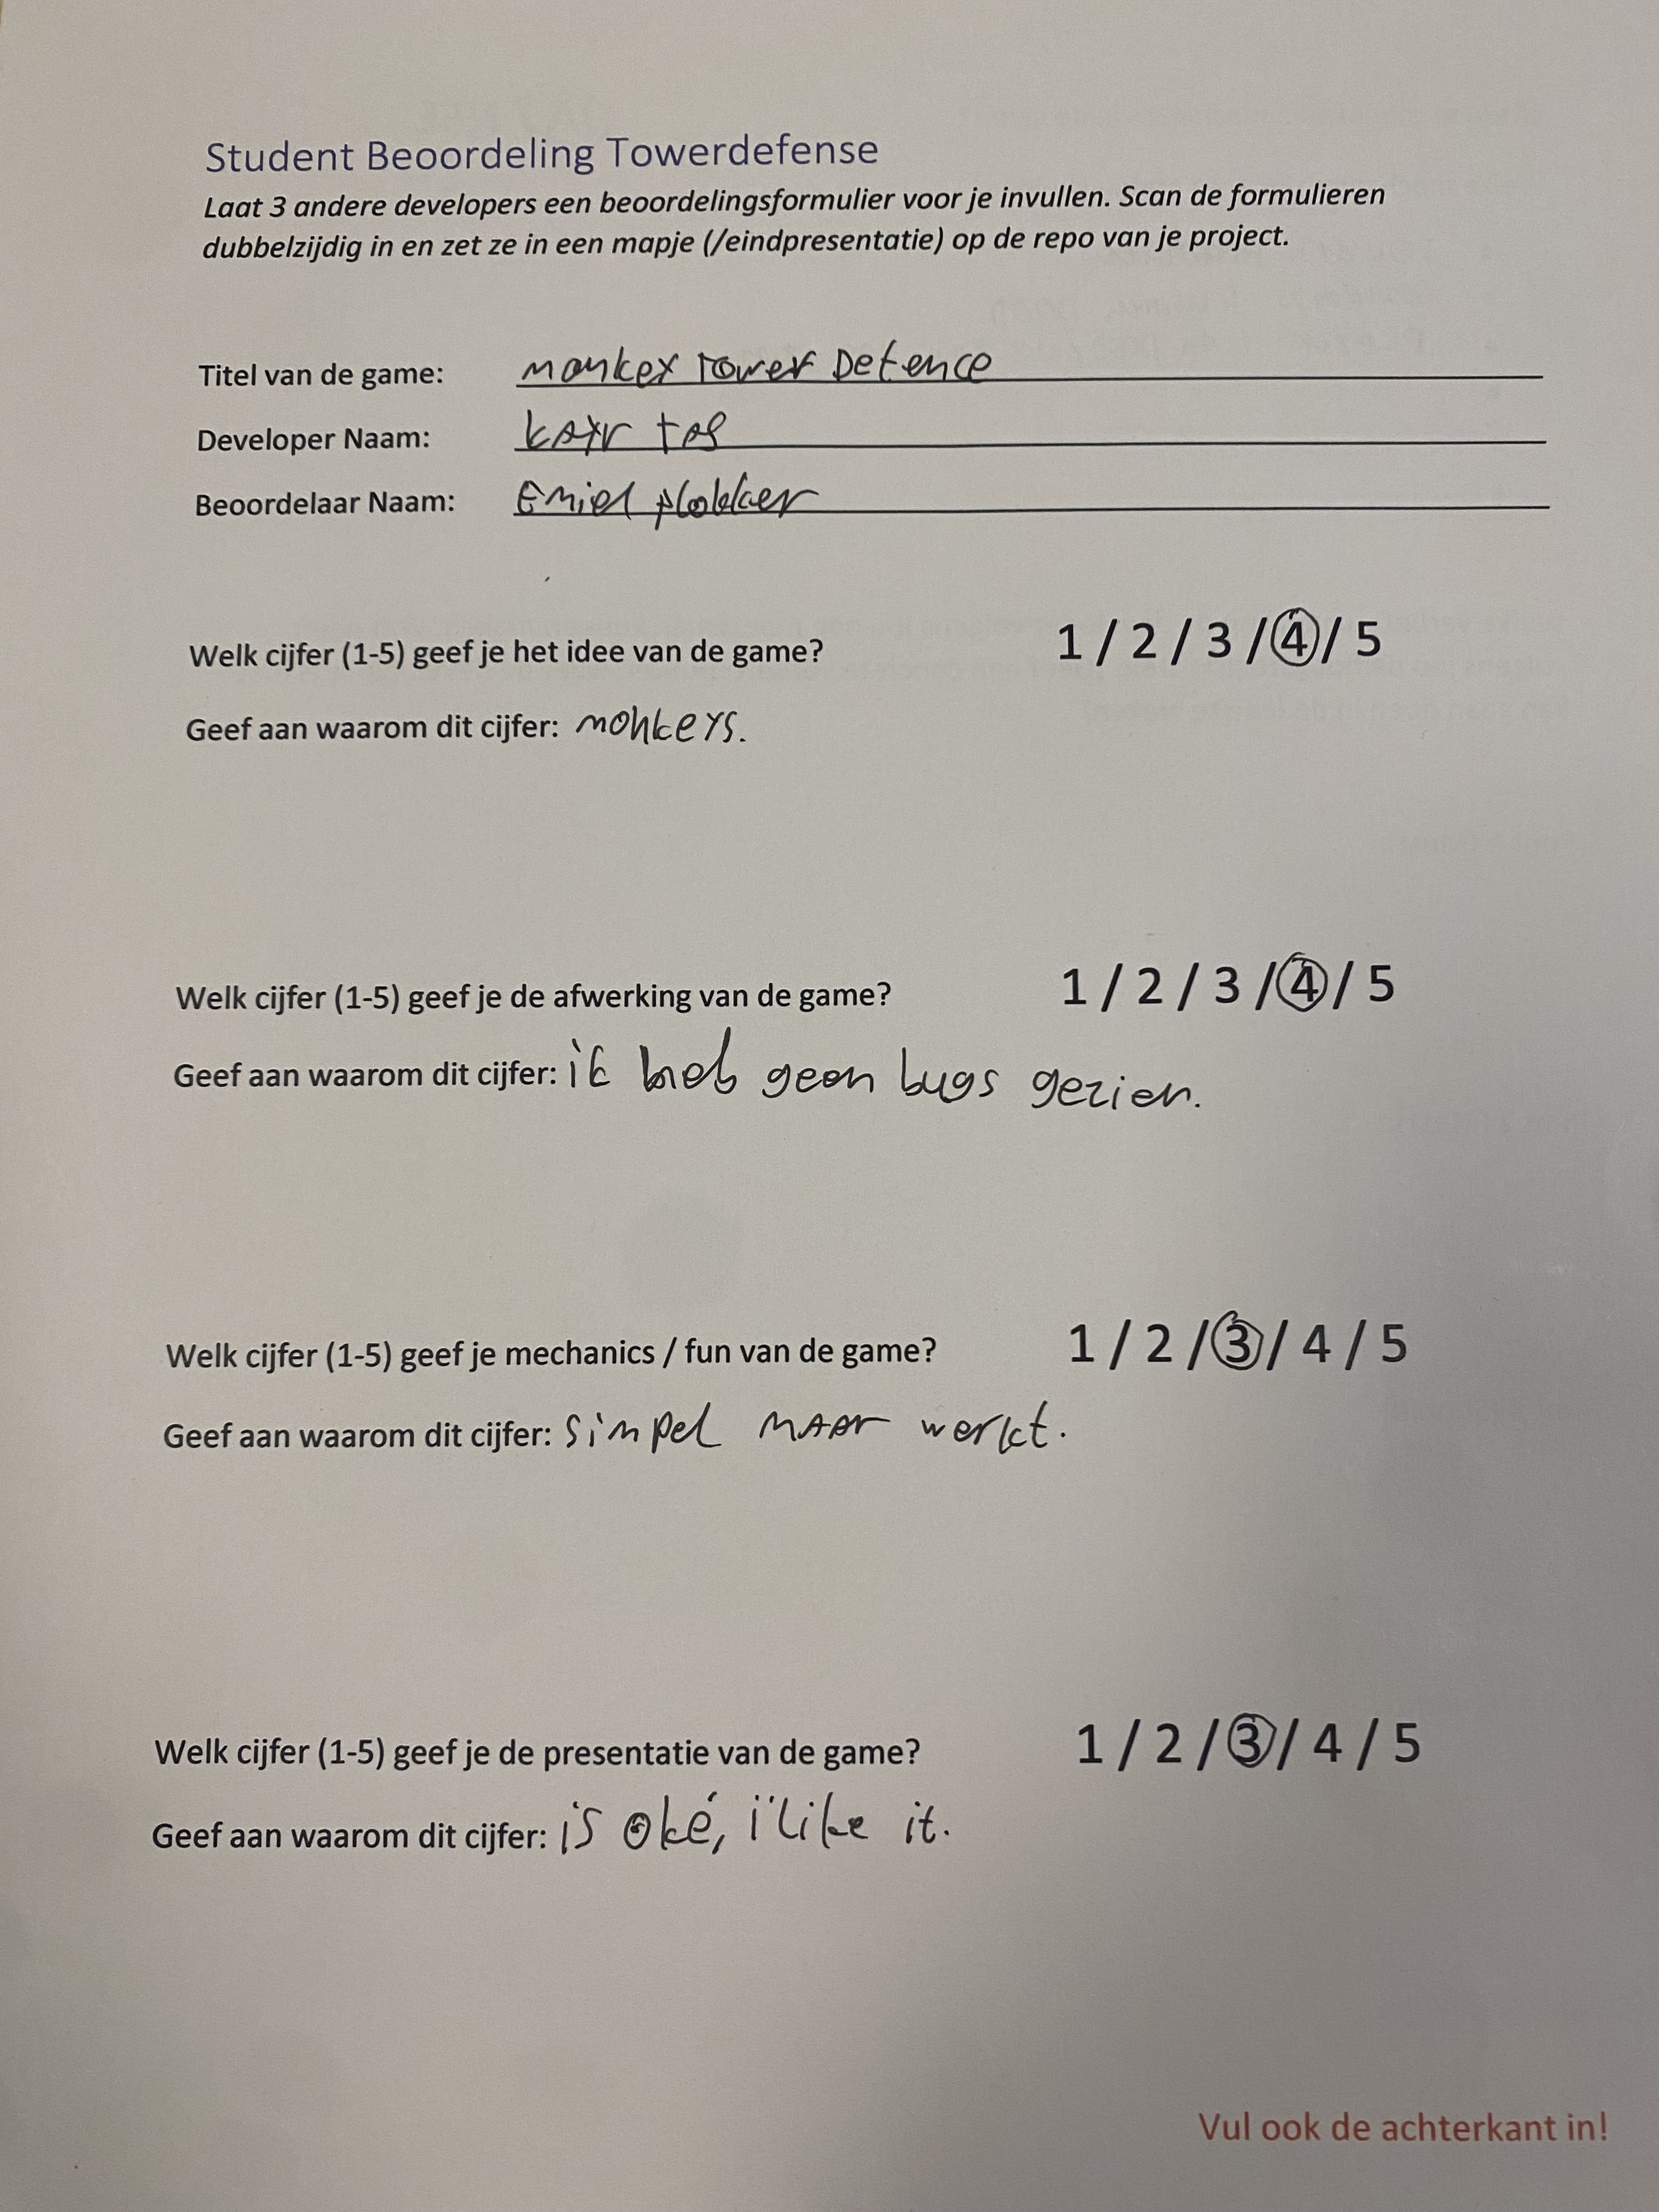 Student Beoordeling Towerdefense
Laat 3 andere developers een beoordelingsformulier voor je invullen. Scan de formulieren
dubbelzijdig in en zet ze in een mapje (/eindpresentatie) op de repo van je project.
Titel van de game: monkey Tower Defence
Developer Naam: tas
Beoordelaar Naam: Emiel plokker
Welk cijfer (1-5) geef je het idee van de game? 1 / 2 / 3 / 4 / 5
Geef aan waarom dit cijfer: monkeys.
Welk cijfer (1-5) geef je de afwerking van de game? 1 / 2 / 3 / 4 / 5
Geef aan waarom dit cijfer: ik heb geen bugs gezien.
Welk cijfer (1-5) geef je mechanics / fun van de game? 1 / 2 / 3 / 4 / 5
Geef aan waarom dit cijfer: simpel maar werkt.
Welk cijfer (1-5) geef je de presentatie van de game? 1 / 2 / 3 / 4 / 5
Geef aan waarom dit cijfer: is oké, i like it.
Vul ook de achterkant in!